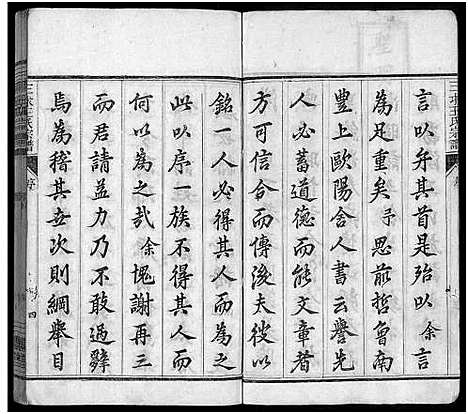 言以弁其首是殆以余言
為足重矣予思前哲魯南
豐上歐陽舍人書云譽先
人必蓄道德而能文章者
方可信合而傳後夫彼以
銘一人必得其人而為之
此以序一族不得其人而
何以為之哉余愧謝再三
而君請益力乃不敢過辭
焉為稽其世次則綱舉目
王氏宗譜
序
四